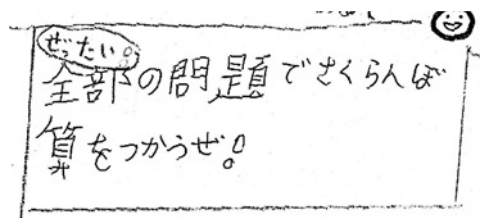 ぜったい!
全部の問題でさくらんぼ
算をつかうぜ!